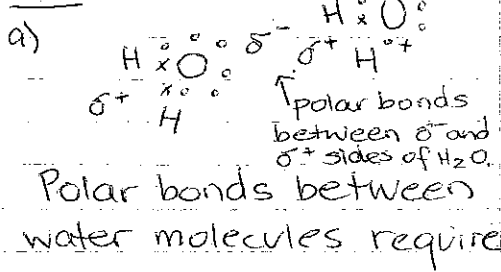 a)
H : O :
H × O δ- δ+ H
δ+ H
polar bonds
between δ- and
δ+ sides of H2O.
Polar bonds between
water molecules require